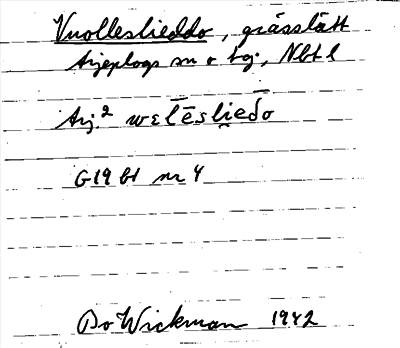 Vuolleslieddo, grässlätt
Arjeplogs sn o tg, Nbtl
Arj.² wɛlēsli̮eđo
G19 bl nr 4
Bo Wickman 1942